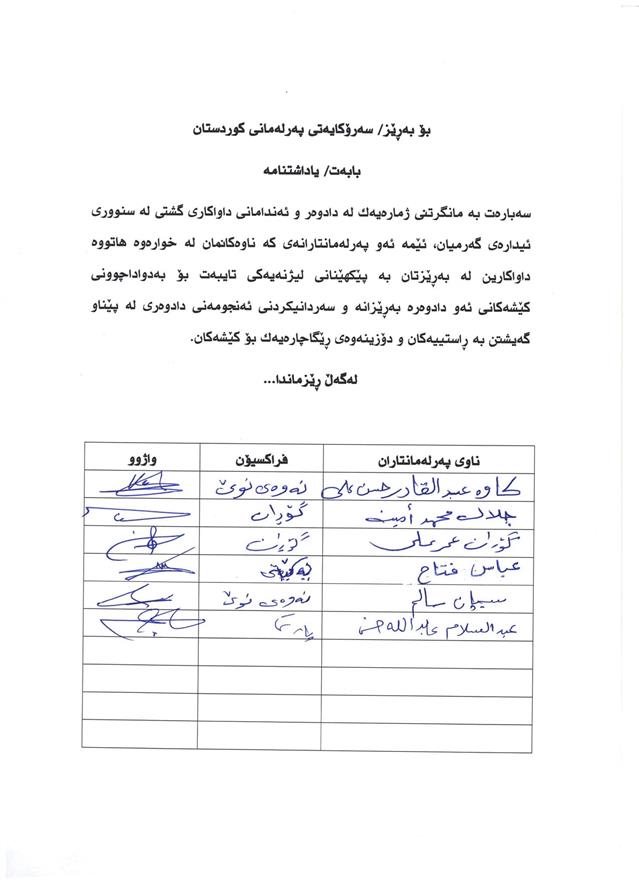 بۆ بەڕێز/ سەرۆكایەتی پەرلەمانی كوردستان
بابەت/ یاداشتنامە
سەبارەت بە مانگرتنی ژمارەیەك لە دادوەر و ئەندامانی داواكاری گشتی لە سنووری
ئیدارەی گەرمیان، ئێمە ئەو پەرلەمانتارانەی كە ناوەكانمان لە خوارەوە هاتووە
داواكارین لە بەڕێزتان بە پێكهێنانی لیژنەیەكی تایبەت بۆ بەدواداچوونی
كێشەكانی ئەو دادوەرە بەڕێزانە و سەردانیكردنی ئەنجومەنی دادوەری لە پێناو
گەیشتن بە ڕاستییەكان و دۆزینەوەی ڕێگاچارەیەك بۆ كێشەكان.
لەگەڵ ڕێزماندا...
ناوی پەرلەمانتاران فراكسیۆن واژوو
كاوە عبدالقادر حسن علی نەوەی نوێ
جلال محمد أمین گۆڕان
گۆران عمر علی گۆڕان
عباس فتاح یەکێتی
سیپان سالم نەوەی نوێ
عبدالسلام عبدالله پارتی